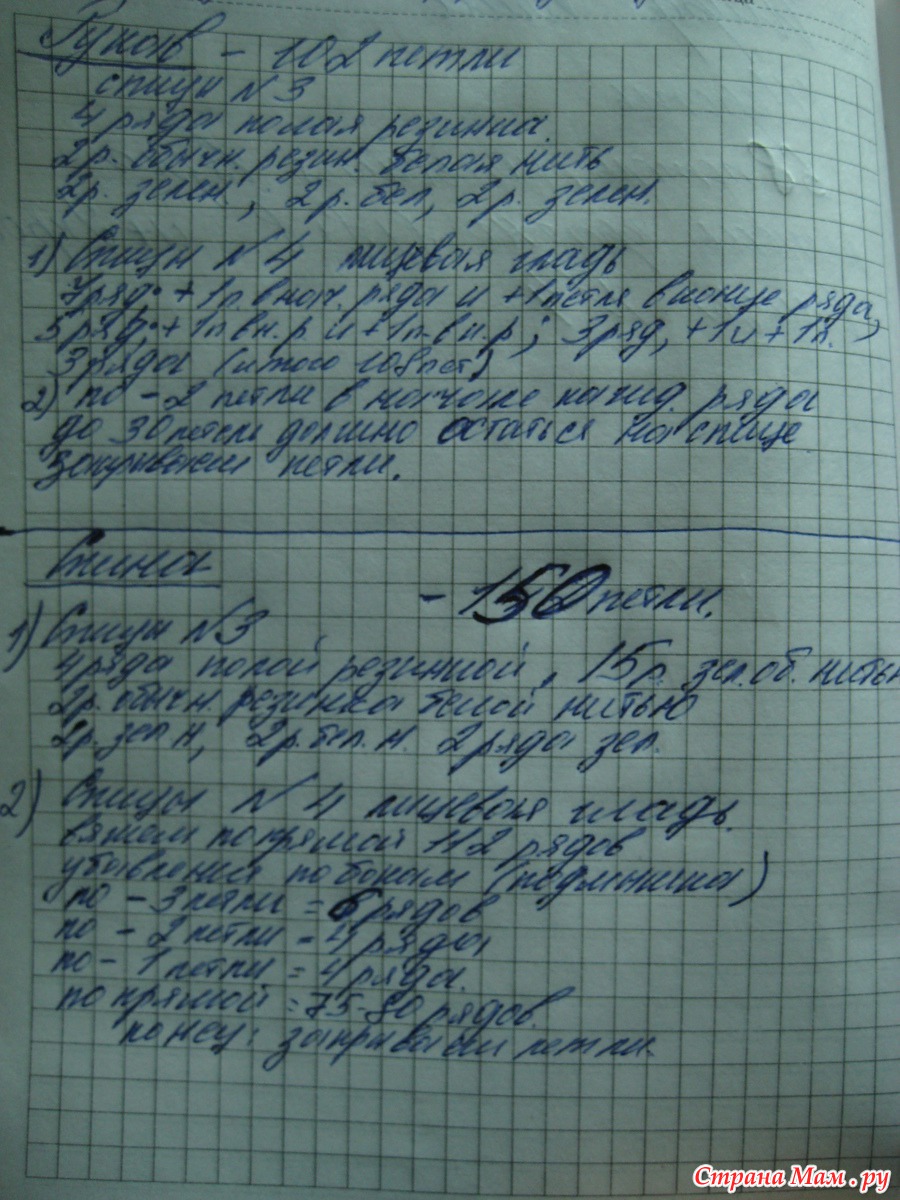 Рукав - 102 петли
спицы N3
4 ряда полая резинка.
2р. обычн. резин. белая нить
2р. зелен.; 2р. бел, 2р. зелен.
1) Спицы N4 лицевая гладь
7ряд. + 1п. в нач. ряда и +1 петля в конце ряда,
5 ряд. + 1п. в н.р и +1п. в к.р; 3 ряд, +1 и +1п.
3 ряда (итого 108 пет)
2) по - 2 петли в начале кажд. ряда
до 30 петель должно остаться на спице
Закрываем петли.
Спинка
- 150 петли.
1) Спицы N3
4 ряда полой резинкой, 15р. зел. об. нитью
2р. обычн. резинка белой нитью
2р. зел н, 2р. бел. н. 2 ряда зел.
2) Спицы N 4 лицевая гладь.
вяжем по прямой 112 рядов
убавления по бокам (подмышка)
по - 3 петли = 6 рядов
по - 2 петли = 4 ряда
по - 1 петли = 4 ряда.
по прямой = 75-80 рядов.
конец: закрываем петли.
Страна Мам.ру